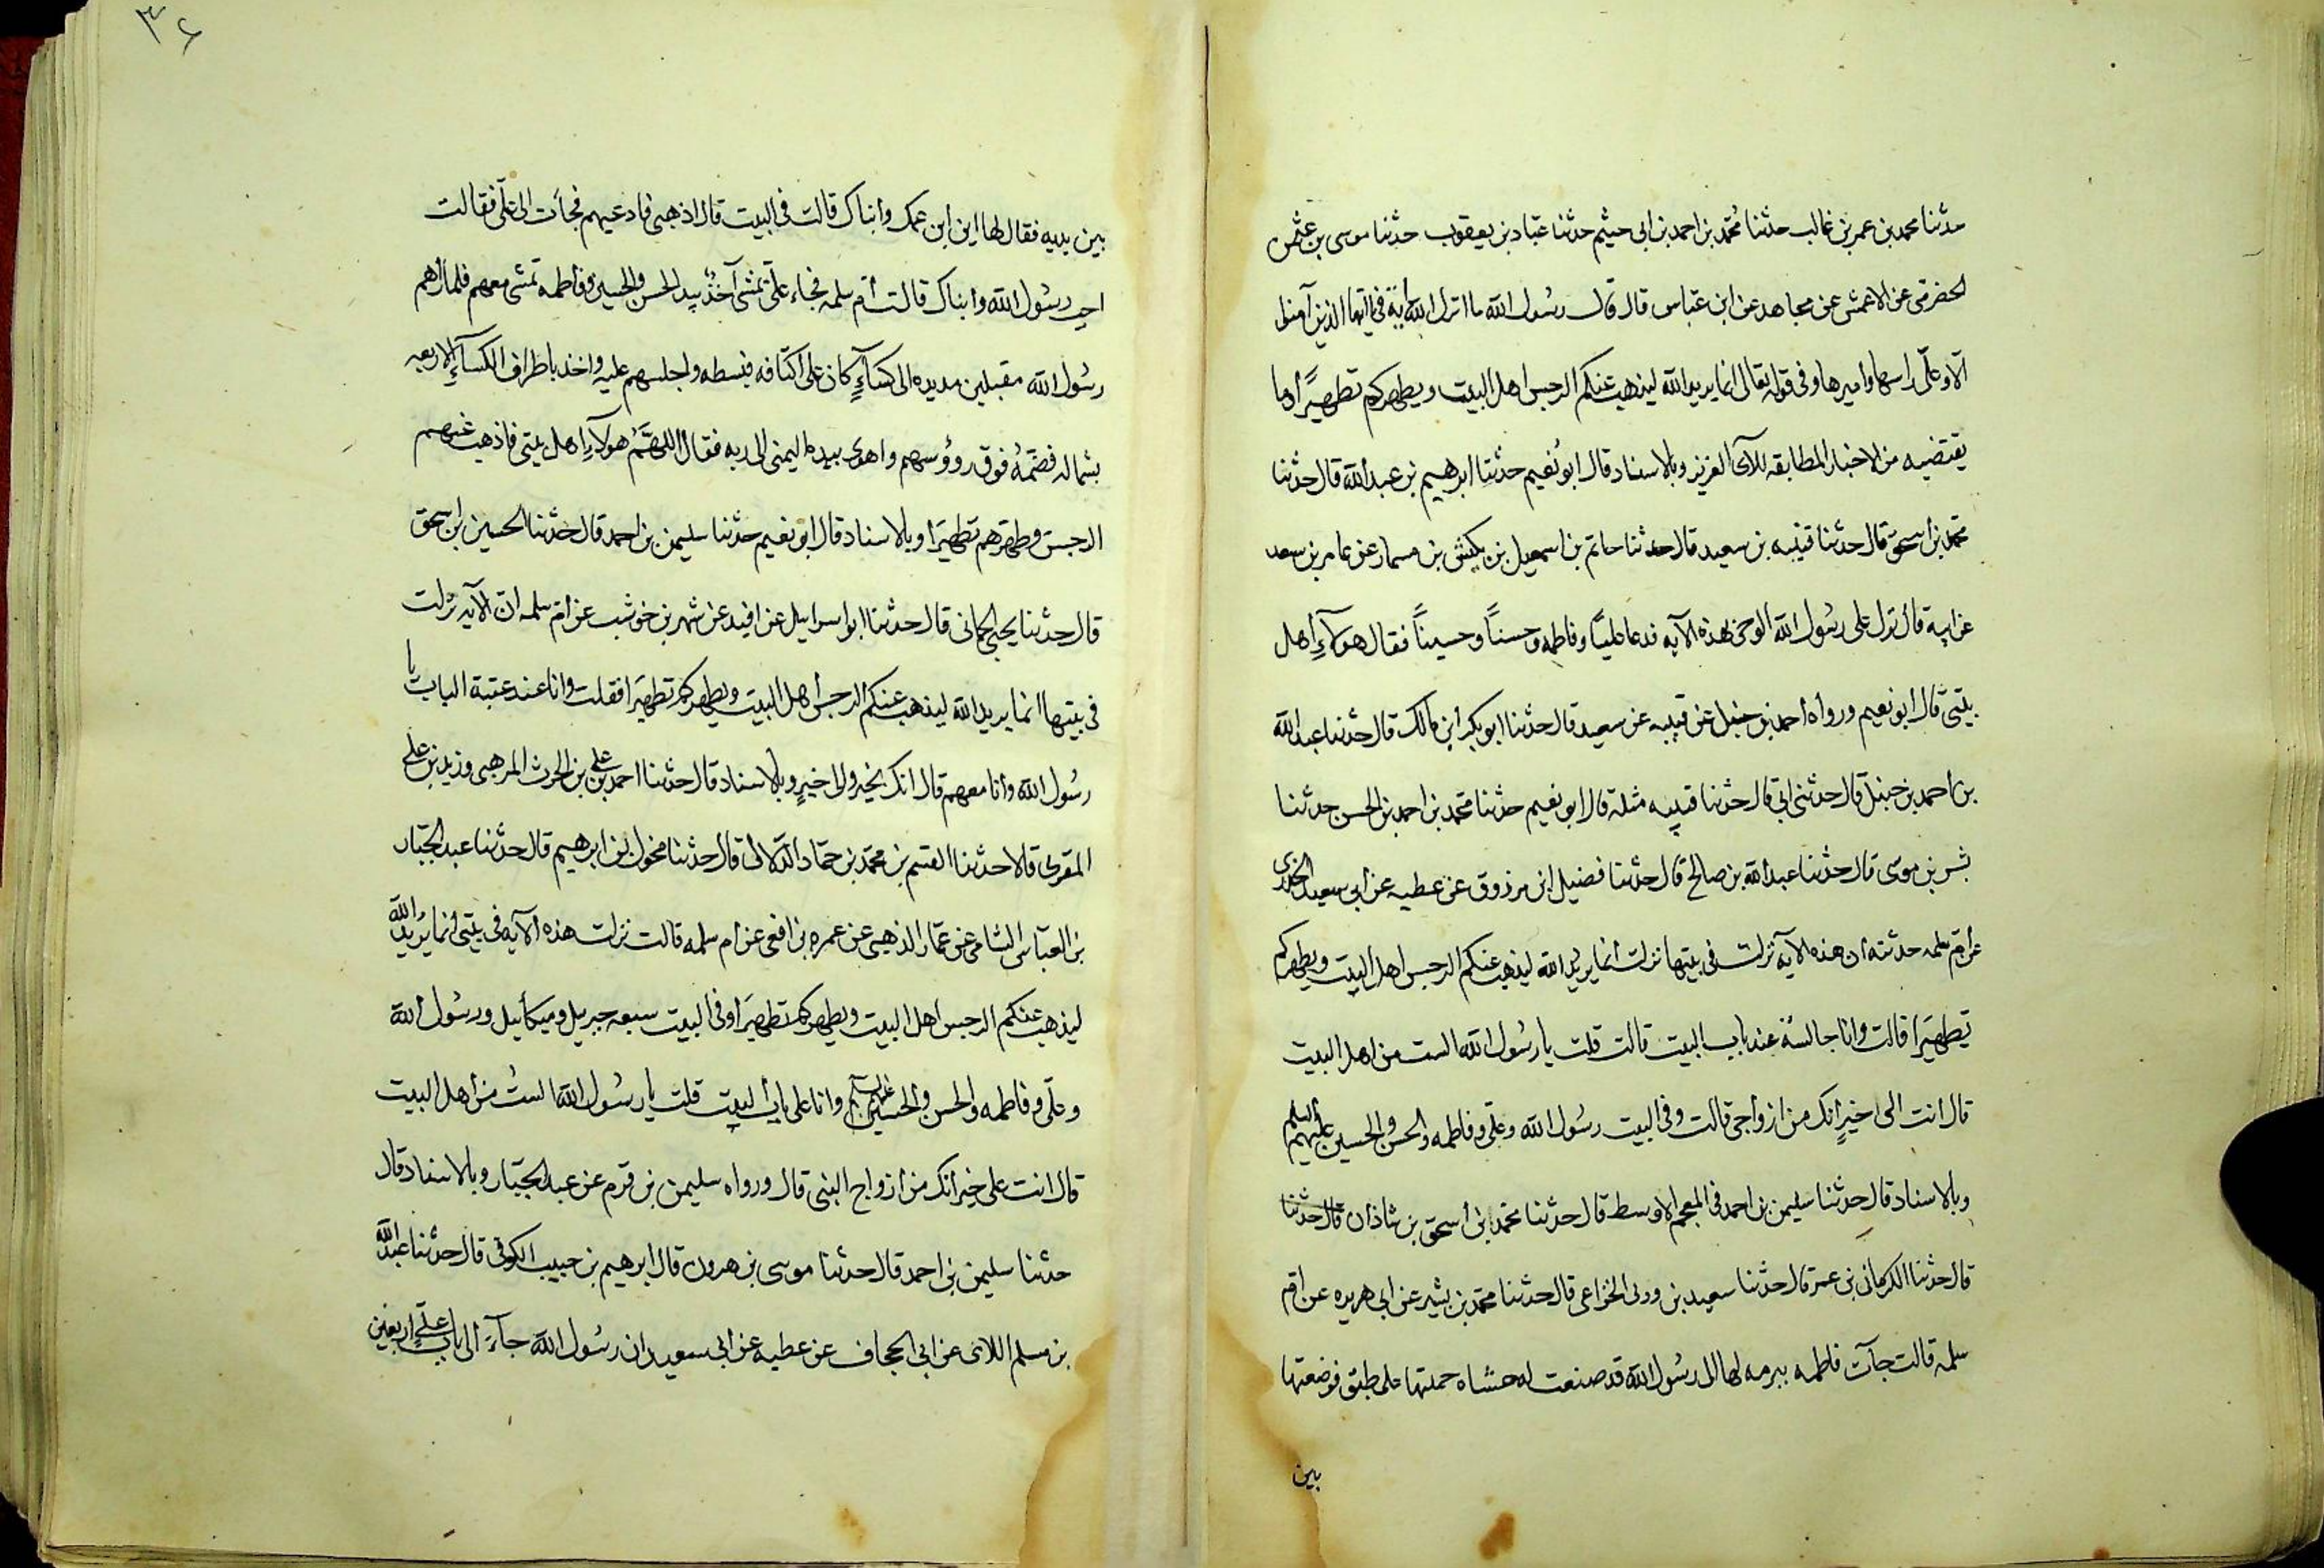 حدثنا محمد بن عمر بن غالب حدثنا محمد بن احمد بن ابى خيثم حدثنا عباد بن يعقوب حدثنا موسى بن عثمن
الحضرمى عن الاعمش عن مجاهد عن ابن عباس قال قال رسول الله ما انزل الله اية فيها يا ايها الذين آمنوا
الا وعلى راسها واميرها وفى قوله تعالى انما يريد الله ليذهب عنكم الرجس اهل البيت ويطهركم تطهيرًا وما
يقتضيه من الاخبار المطابقه للآى العزيز وبالاسناد قال ابو نعيم حدثنا ابرهيم بن عبد الله قال حدثنا
محمد بن اسحق قال حدثنا قتيبه بن سعيد قال حدثنا حاتم بن اسمعيل بن بكير بن مسمار عن عامر بن سعد
عن ابيه قال نزل على رسول الله الوحى بهذه الآيه فدعا عليًا وفاطمه وحسنًا وحسينًا فقال هولاءِ اهل
بيتى قال ابو نعيم ورواه احمد بن حنبل عن قتيبه عن سعيد قال حدثنا ابو بكر ابن مالك قال حدثنا عبد الله
بن احمد بن حنبل قال حدثنى ابى قال حدثنا قتيبه مثله قال ابو نعيم حدثنا محمد بن احمد بن الحسن حدثنا
بشر بن موسى قال حدثنا عبد الله بن صالح قال حدثنا فضيل ابن مرزوق عن عطيه عن ابى سعيد الخدرى
عن ام سلمه حدثته ان هذه الايه نزلت فى بيتها نزلت انما يريد الله ليذهب عنكم الرجس اهل البيت ويطهركم
تطهيرًا قالت وانا جالسة عند باب البيت قالت قلت يا رسول الله الست من اهل البيت
قال انت الى خيرٍ انك من ازواجى قالت وفى البيت رسول الله وعلى وفاطمه والحسن والحسين عليهم السلم
وبالاسناد قال حدثنا سليمن بن احمد فى المعجم الاوسط قال حدثنا محمد ابن اسحق بن شاذان قال حدثنا
قال حدثنا الكرمانى بن عمر قال حدثنا سعيد بن وردى الخزاعى قال حدثنا محمد بن بشير عن ابى هريره عن ام
سلمه قالت جآت فاطمه ببرمه لها الى رسول الله قد صنعت له حشاه حملتها على طبق فوضعتها
بين
٣٤
بين يديه فقال لها اين ابن عمك وابناك قالت فى البيت قال اذهبى فادعيهم فجأت الى على فقالت
اجب رسول الله وابناك قالت ام سلمه فجاء على يمشى آخذ بيد الحسن والحسين وفاطمه تمشى معهم فلما راهم
رسول الله مقبلين مد يده الى كسآءٍ كان على اكتافه فبسطه واجلسهم عليه واخذ باطراف الكسآءِ الاربعه
بشماله فضمه فوق روؤسهم واهوى بيده اليمنى الى ربه فقال اللهم هولاءِ اهل بيتى فاذهب عنهم
الرجس وطهرهم تطهيرًا وبالاسناد قال ابو نعيم حدثنا سليمن بن احمد قال حدثنا الحسين ابن اسحق
قال حدثنا يحيى الحمانى قال حدثنا ابو اسرايل عن شهر بن خوشب عن ام سلمه ان الآيه نزلت
فى بيتها انما يريد الله ليذهب عنكم الرجس اهل البيت ويطهركم تطهيرًا فقلت وانا عند عتبة الباب يا
رسول الله وانا معهم قال انك بخير والى خيرٍ وبالاسناد قال حدثنا احمد بن على بن الحرث المرهبى وزيد بن على
المقرى قالا حدثنا القسم بن محمد بن حماد الدلالى قال حدثنا مخول بن ابرهيم قال حدثنا عبد الجبار
بن العباس الشامى عن عمار الذهبى عن عمره بن افعى عن ام سلمه قالت نزلت هذه الآيه فى بيتى انما يريد الله
ليذهب عنكم الرجس اهل البيت ويطهركم تطهيرًا وفى البيت سبعه جبريل وميكآئيل ورسول الله
وعلى وفاطمه والحسن والحسين عليهم السلم وانا على باب البيت قلت يا رسول الله الستُ من اهل البيت
قال انت على خير انك من ازواج النبى قال ورواه سليمن بن قرم عن عبد الجبار وبالاسناد قال
حدثنا سليمن بن احمد قال حدثنا موسى بن هرون قال ابرهيم بن حبيب الكوفى قال حدثنا عبد الله
بن مسلم اللاى عن ابى الحجاف عن عطيه عن ابى سعيد ان رسول الله جآءَ الى باب على اربعين